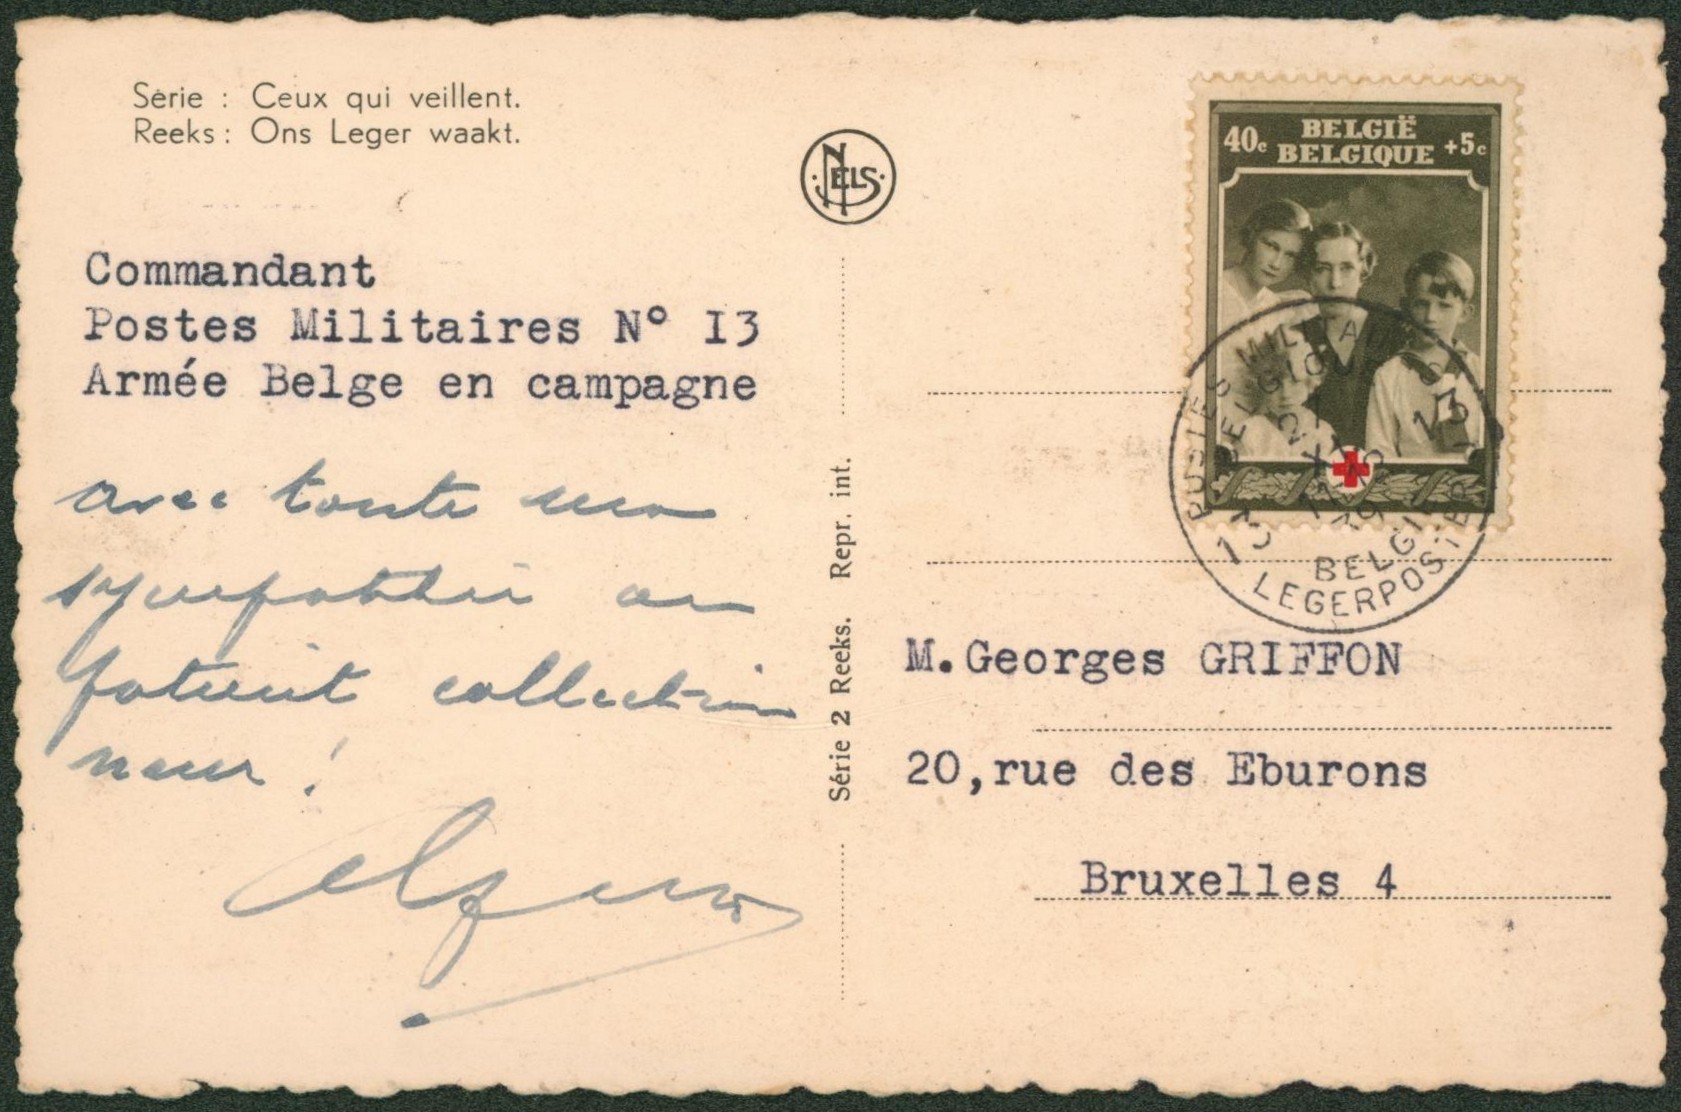 Série : Ceux qui veillent.
Reeks : Ons Leger waakt.
NELS
BELGIË
40c BELGIQUE +5c
Commandant
Postes Militaires N° I3
Armée Belge en campagne
avec toute ma
sympathie au
patient collection
neur !
Série 2 Reeks. Repr. int.
POSTES MILITAIRES
BELGIQUE
13
13
BELGIE
LEGERPOSTERIJ
M.Georges GRIFFON
20,rue des Eburons
Bruxelles 4